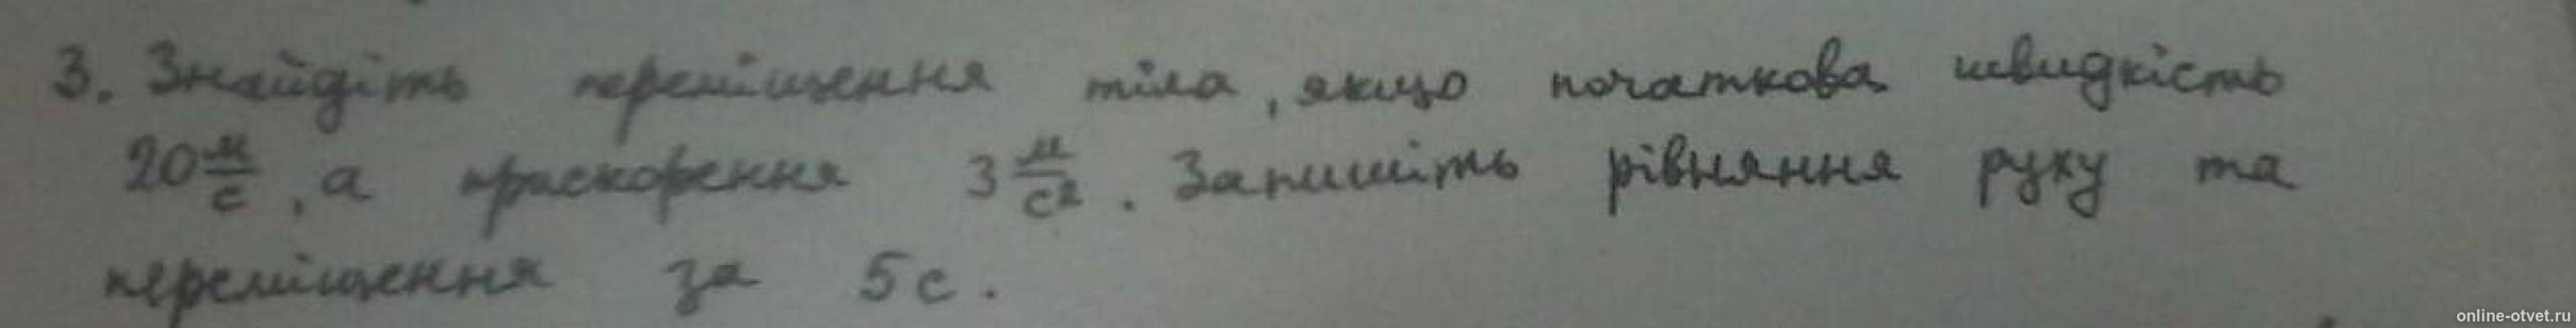 3. Знайдіть переміщення тіла, якщо початкова швидкість
20 м/с, а прискорення 3 м/с². Запишіть рівняння руху та
переміщення за 5с.
online-otvet.ru